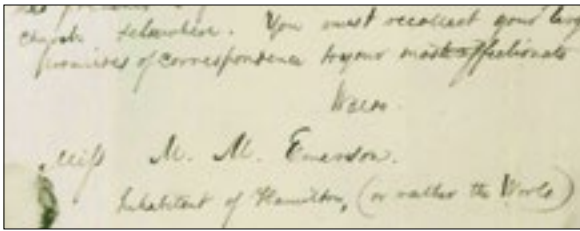 church elsewhere. You must recollect your large
promises of correspondence to your most affectionate
Waldo.
Miss M. M. Emerson.
Inhabitant of Hamilton, (or rather the World)